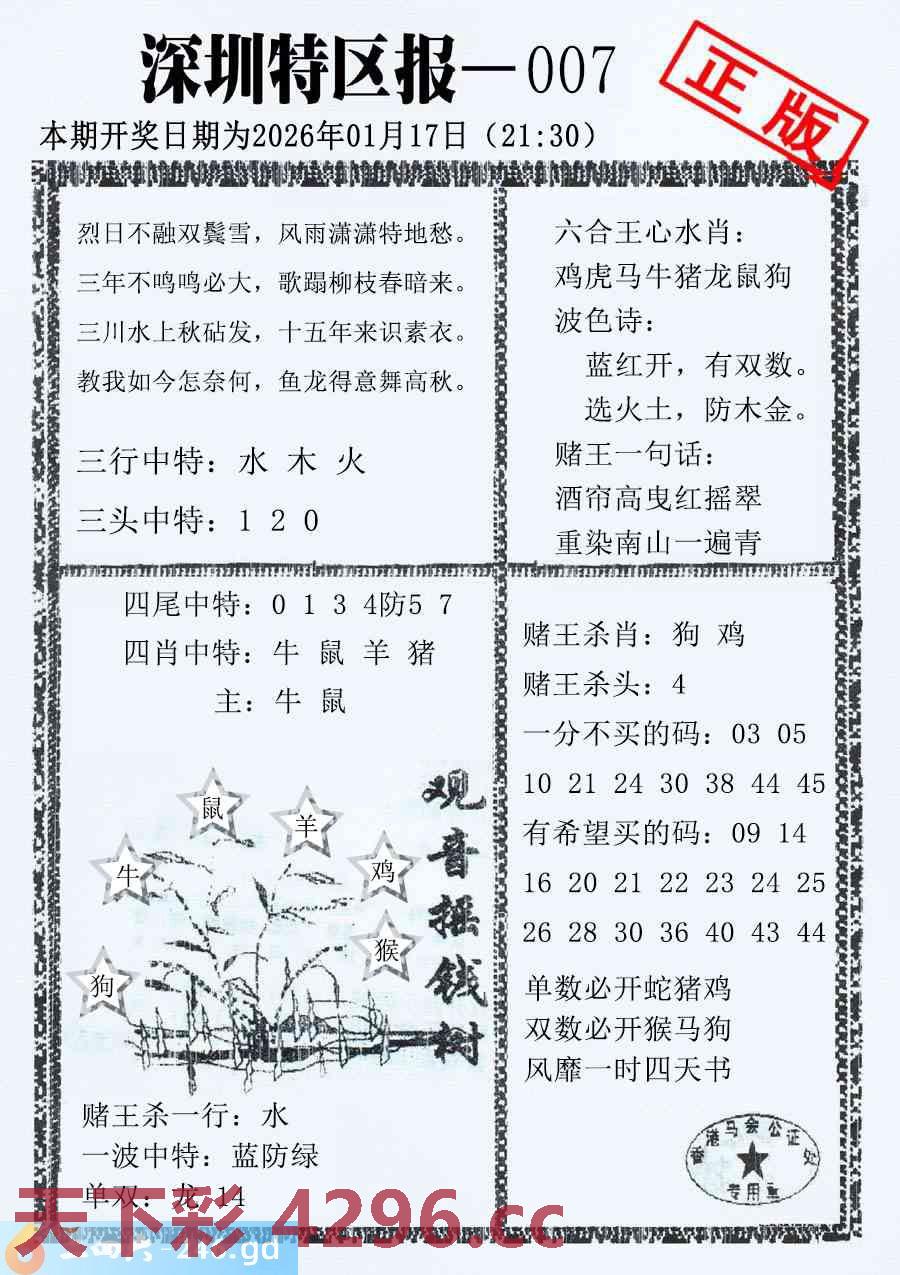 深圳特区报—007
正版
本期开奖日期为2026年01月17日（21:30）
烈日不融双鬓雪，风雨潇潇特地愁。
三年不鸣鸣必大，歌蹋柳枝春暗来。
三川水上秋砧发，十五年来识素衣。
教我如今怎奈何，鱼龙得意舞高秋。
三行中特：水 木 火
三头中特：1 2 0
六合王心水肖：
鸡虎马牛猪龙鼠狗
波色诗：
蓝红开，有双数。
选火土，防木金。
赌王一句话：
酒帘高曳红摇翠
重染南山一遍青
四尾中特：0 1 3 4防5 7
四肖中特：牛 鼠 羊 猪
主：牛 鼠
鼠
羊
牛
鸡
猴
狗
观音摇钱树
赌王杀一行：水
一波中特：蓝防绿
单双：龙 14
赌王杀肖：狗 鸡
赌王杀头：4
一分不买的码：03 05
10 21 24 30 38 44 45
有希望买的码：09 14
16 20 21 22 23 24 25
26 28 30 36 40 43 44
单数必开蛇猪鸡
双数必开猴马狗
风靡一时四天书
香港马会公证处
专用章
天下彩 4296.cc